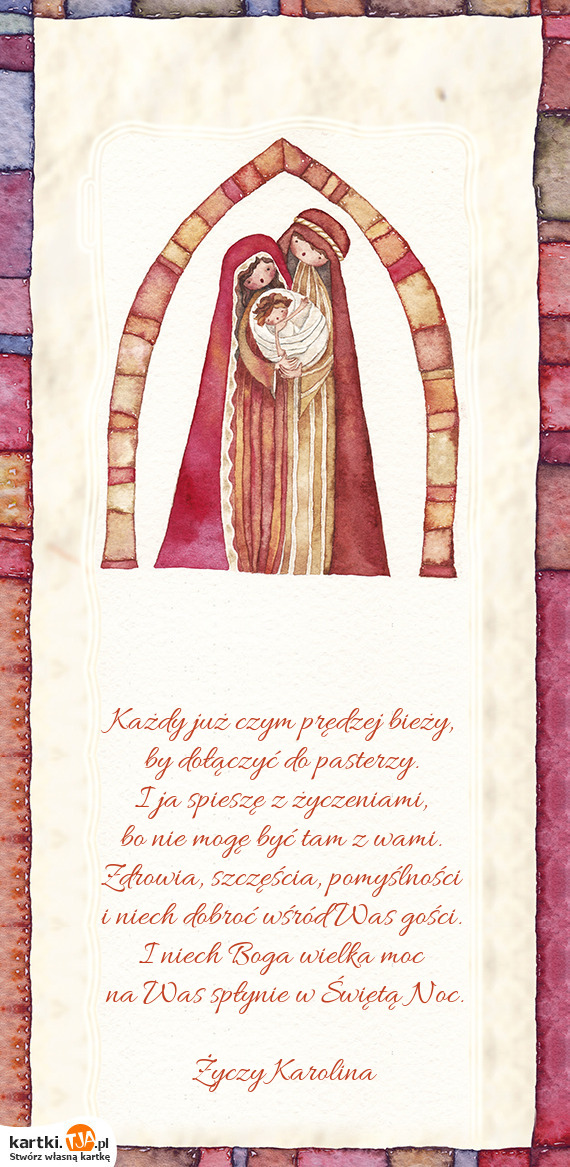 Każdy już czym prędzej bieży,
by dołączyć do pasterzy.
I ja spieszę z życzeniami,
bo nie mogę być tam z wami.
Zdrowia, szczęścia, pomyślności
i niech dobroć wśród Was gości.
I niech Boga wielka moc
na Was spłynie w Świętą Noc.
Życzy Karolina
kartki.TJA.pl
Stwórz własną kartkę